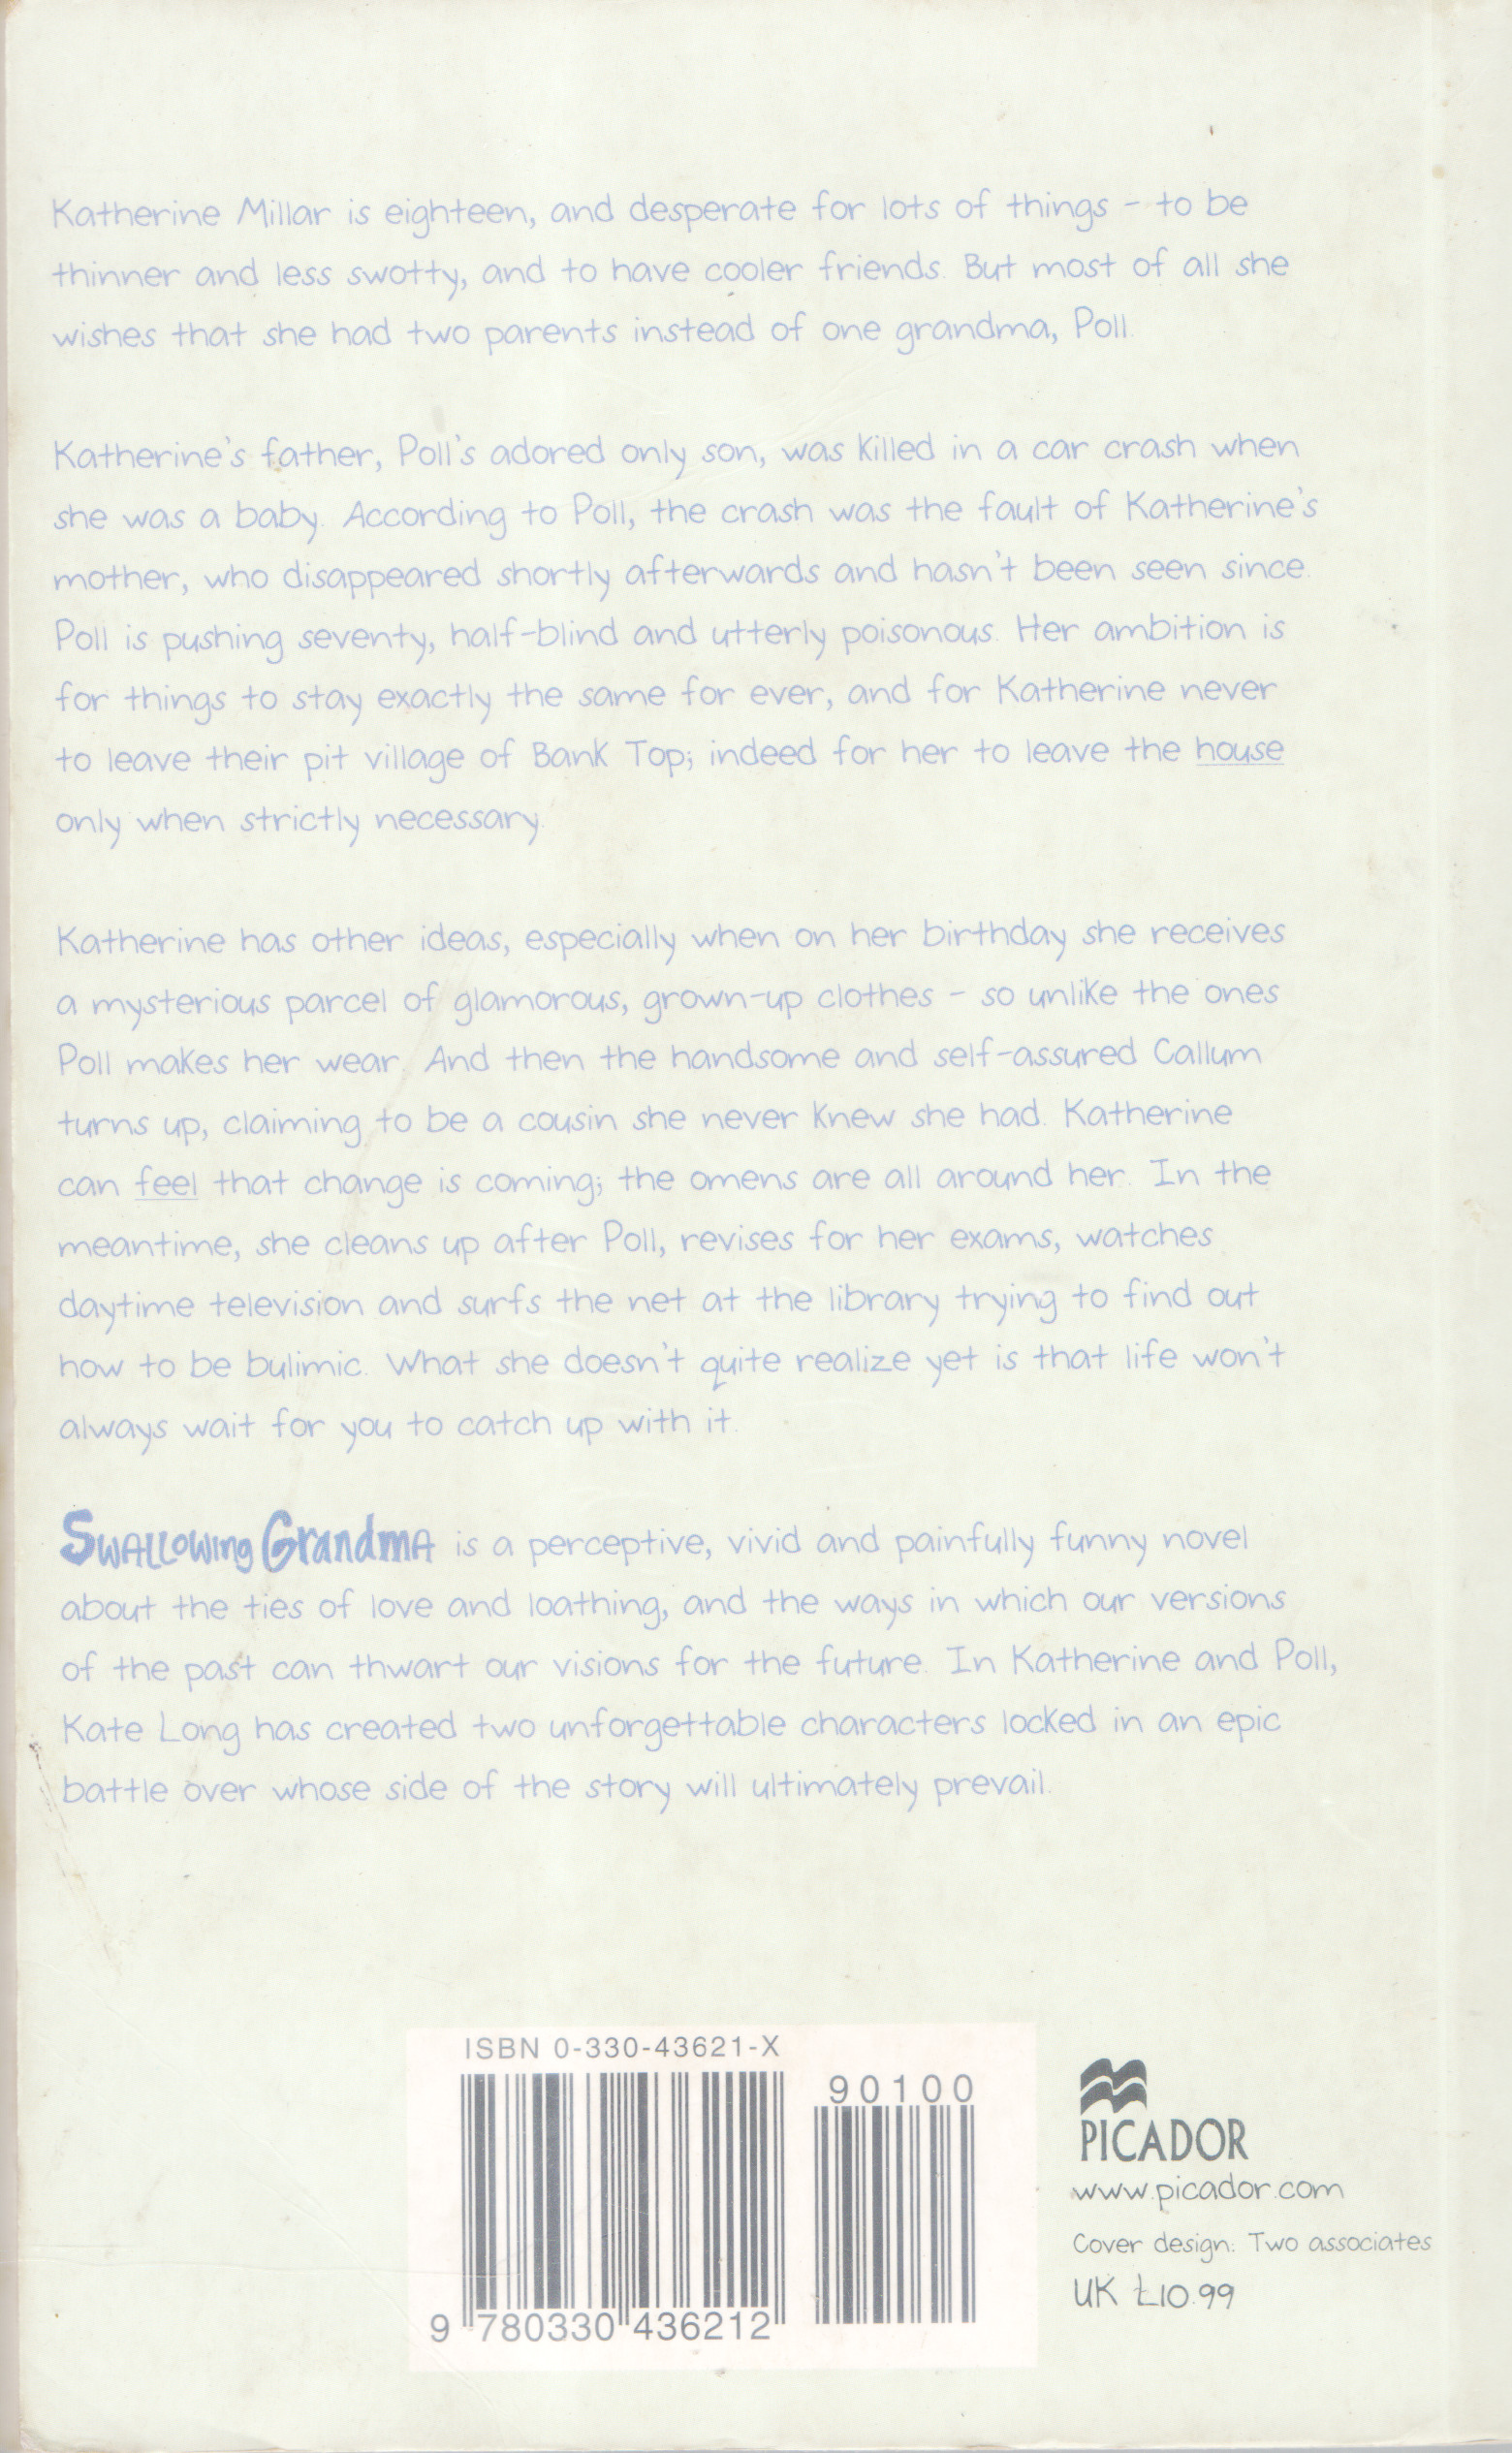 Katherine Millar is eighteen, and desperate for lots of things - to be
thinner and less swotty, and to have cooler friends. But most of all she
wishes that she had two parents instead of one grandma, Poll.
Katherine's father, Poll's adored only son, was killed in a car crash when
she was a baby. According to Poll, the crash was the fault of Katherine's
mother, who disappeared shortly afterwards and hasn't been seen since.
Poll is pushing seventy, half-blind and utterly poisonous. Her ambition is
for things to stay exactly the same for ever, and for Katherine never
to leave their pit village of Bank Top; indeed for her to leave the house
only when strictly necessary.
Katherine has other ideas, especially when on her birthday she receives
a mysterious parcel of glamorous, grown-up clothes - so unlike the ones
Poll makes her wear. And then the handsome and self-assured Callum
turns up, claiming to be a cousin she never knew she had. Katherine
can feel that change is coming; the omens are all around her. In the
meantime, she cleans up after Poll, revises for her exams, watches
daytime television and surfs the net at the library trying to find out
how to be bulimic. What she doesn't quite realize yet is that life won't
always wait for you to catch up with it.
Swallowing Grandma is a perceptive, vivid and painfully funny novel
about the ties of love and loathing, and the ways in which our versions
of the past can thwart our visions for the future. In Katherine and Poll,
Kate Long has created two unforgettable characters locked in an epic
battle over whose side of the story will ultimately prevail.
ISBN 0-330-43621-X
90100
9 780330 436212
PICADOR
www.picador.com
Cover design: Two associates
UK £10.99